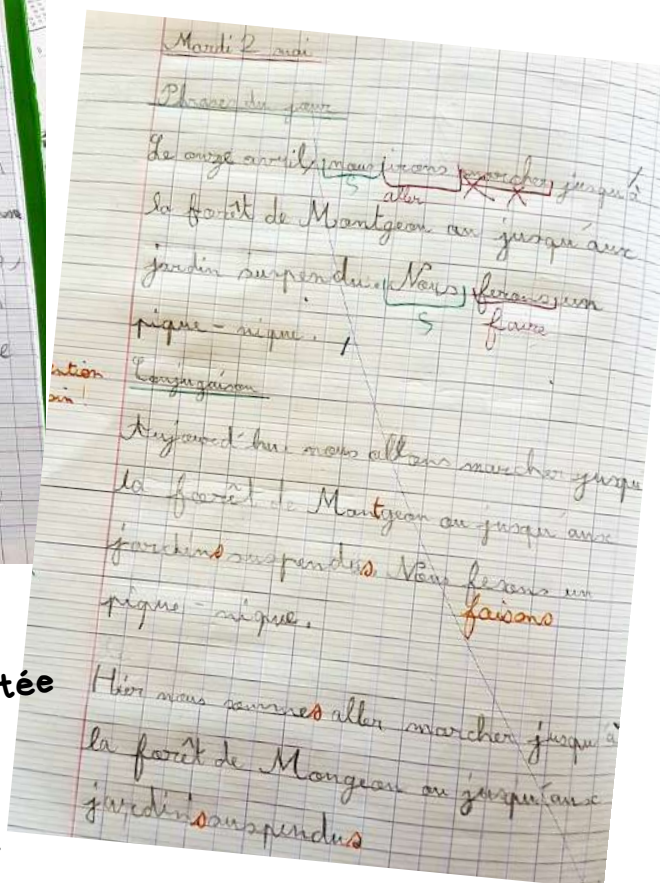 Mardi 2 mai
Phrase du jour
Le onze avril, nous irons marcher jusqu'à
S aller
la forêt de Montgeon ou jusqu'aux
jardin suspendu. Nous ferons un
S faire
pique-nique.
Conjugaison
Aujourd'hui nous allons marcher jusqu
la forêt de Montgeon ou jusqu'aux
jardins suspendus. Nous ferons un
faisons
pique-nique.
tée
Hier nous sommes aller marcher jusqu'à
la forêt de Mongeon ou jusqu'aux
jardins suspendus